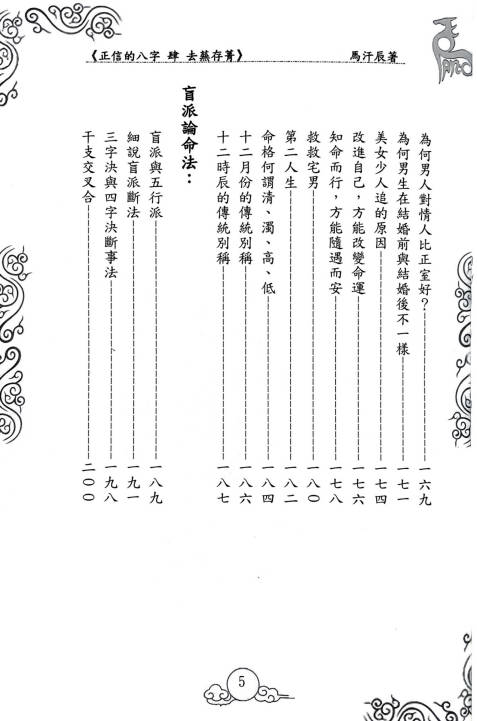 《正信的八字 肆 去蕪存菁》 馬汗辰著
為何男人對情人比正室好？一六九
為何男生在結婚前與結婚後不一樣一七一
美女少人追的原因一七四
改進自己，方能改變命運一七六
知命而行，方能隨遇而安一七八
救救宅男一八０
第二人生一八二
命格何謂清、濁、高、低一八四
十二月份的傳統別稱一八六
十二時辰的傳統別稱一八七
盲派論命法：
盲派與五行派一八九
細說盲派斷法一九一
三字決與四字決斷事法一九八
干支交叉合二００
5